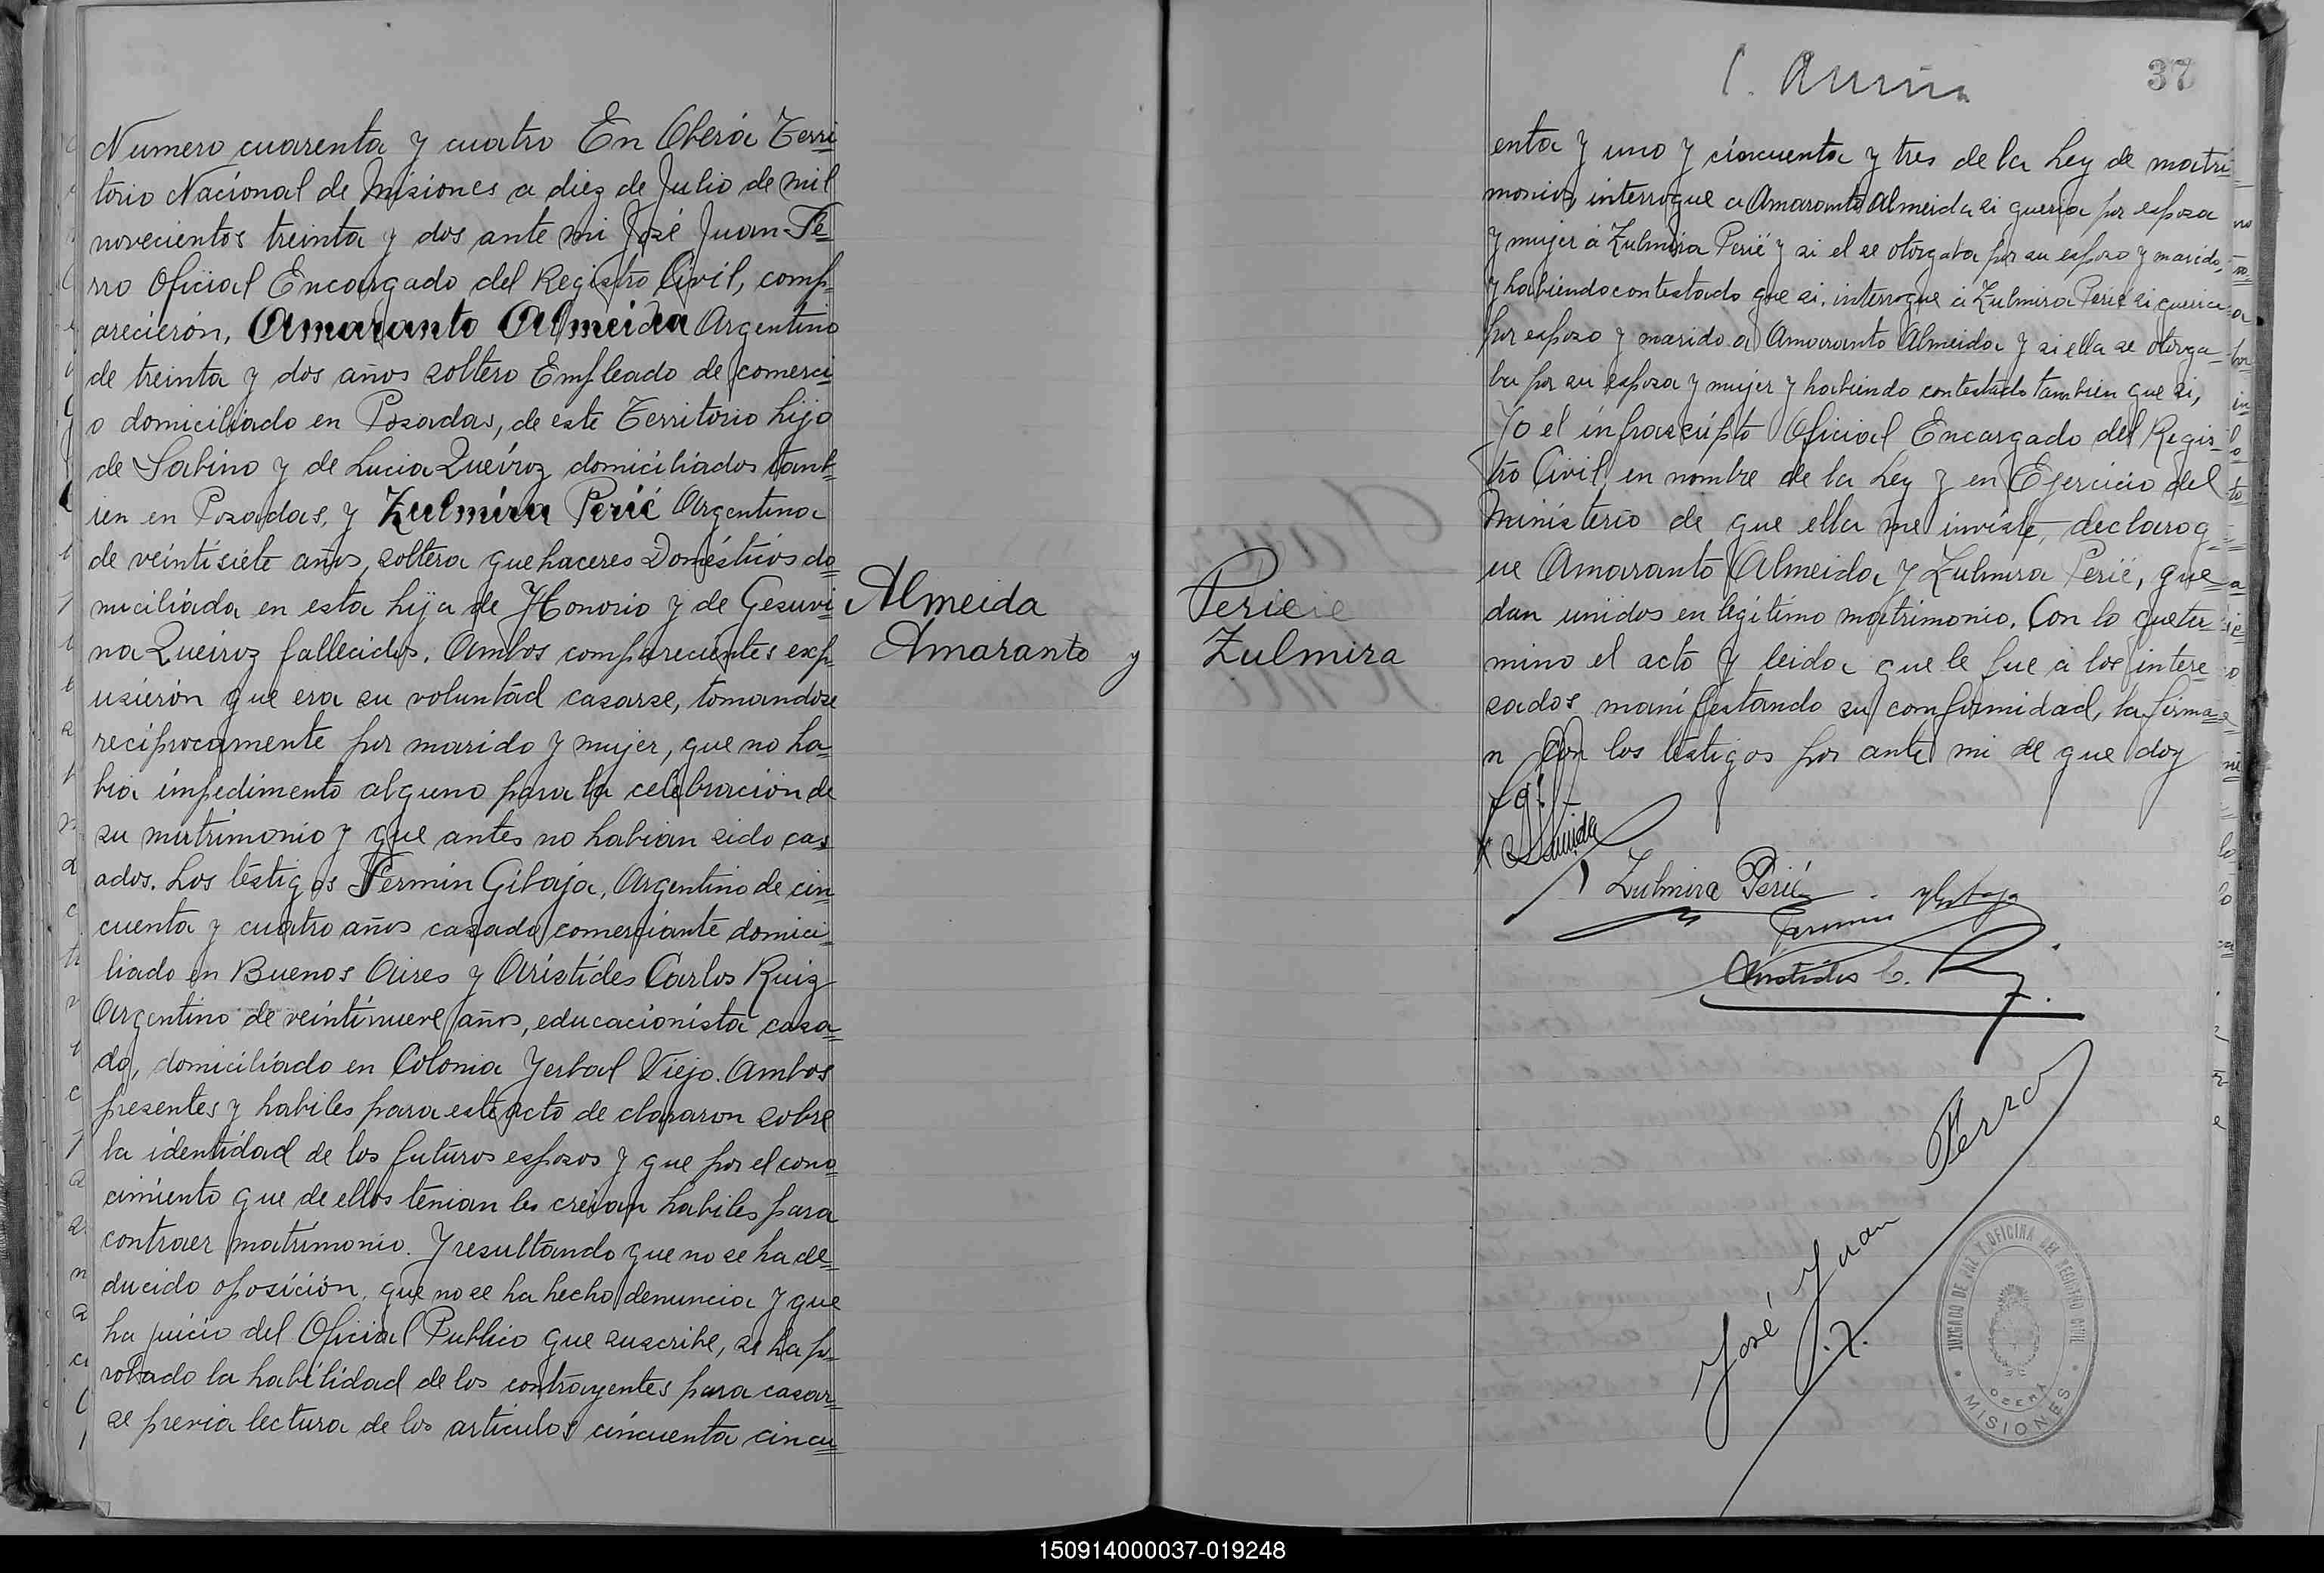 Numero cuarenta y cuatro En Oberá Terri=
torio Nacional de Misiones a diez de Julio de mil
novecientos treinta y dos ante mi José Juan Fe=
rro Oficial Encargado del Registro Civil, comp=
arecierón, Amaranto Almeida Argentino
de treinta y dos años soltero Empleado de comerci=
o domiciliado en Posadas, de este Territorio hijo
de Sabino y de Lucia Queiroz domiciliados tamb=
ien en Posadas, y Zulmira Perié Argentina
de veintisiete años, soltera quehaceres Domésticos do=
miciliada en esta hija de Honorio y de Gesuvi=
na Queiroz fallecidos. Ambos comparecientes exp=
usierón que era su voluntad casarse, tomandose
reciprocamente por marido y mujer, que no ha=
bia impedimento alguno para la celebración de
su matrimonio y que antes no habian sido cas=
ados. Los testigos Fermin Gibaja, Argentino de cin=
cuenta y cuatro años casado comerciante domici=
liado en Buenos Aires y Aristides Carlos Ruiz
Argentino de veintinueve años, educacionista casa=
do, domiciliado en Colonia Yerbal Viejo. Ambos
presentes y habiles para este acto de clararon sobre
la identidad de los futuros esposos y que por el cono=
cimiento que de ellos tenian les creian habiles para
contraer matrimonio. Y resultando que no se ha de=
ducido oposición, que no se ha hecho denuncia y que
ha juicio del Oficial Publico que suscribe, se ha p=
robado la habilidad de los contrayentes para casar=
se previa lectura de los articulos cincuenta cincu=
Almeida
Amaranto y
Perié
Zulmira
37
enta y uno y cincuenta y tres de la Ley de matri=
monios, interrogue a Amaranto Almeida si queria por esposa
y mujer á Zulmira Perié y si el se otorgaba por su esposo y marido,
y habiendo contestado que si, interrogue á Zulmira Perié si queria
por esposo y marido a Amaranto Almeida y si ella se otorga=
ba por su esposa y mujer y habiendo contestado tambien que si,
Yo el infrascripto Oficial Encargado del Regis=
tro Civil, en nombre de la Ley y en Ejercicio del
Ministerio de que ella me inviste, declaro q=
ue Amaranto Almeida y Zulmira Perié, que=
dan unidos en legitimo matrimonio. Con lo que ter=
mino el acto y leida que le fue á los intere=
sados manifestando su conformidad, la firma=
n con los testigos por ante mi de que doy
Almeida
Zulmira Perié
Fermin Gibaja
Aristides C. Ruiz
José Juan Ferro
JUZGADO DE PAZ Y OFICINA DEL REGISTRO CIVIL
OBERÁ
MISIONES
150914000037-019248